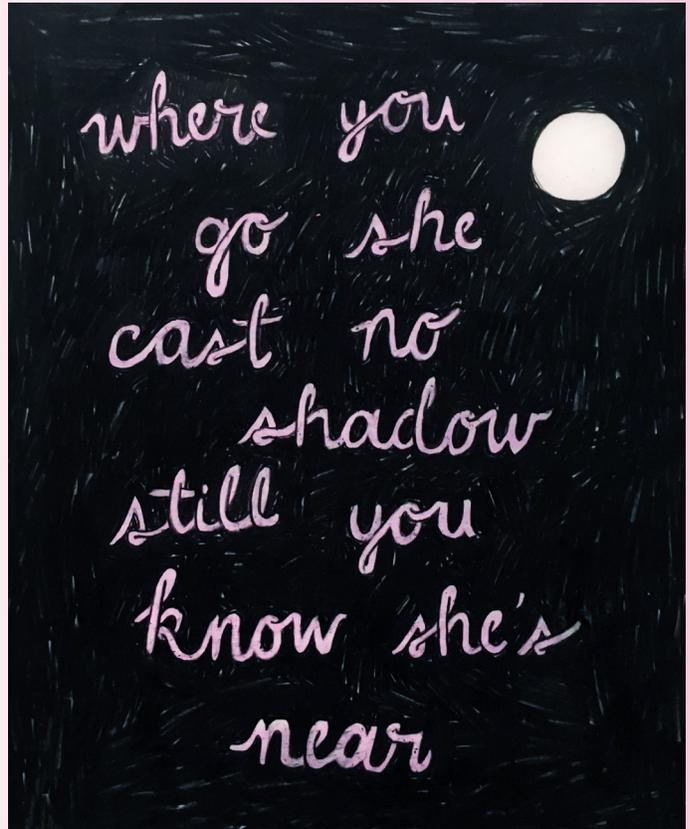 where you
go she
cast no
shadow
still you
know she's
near